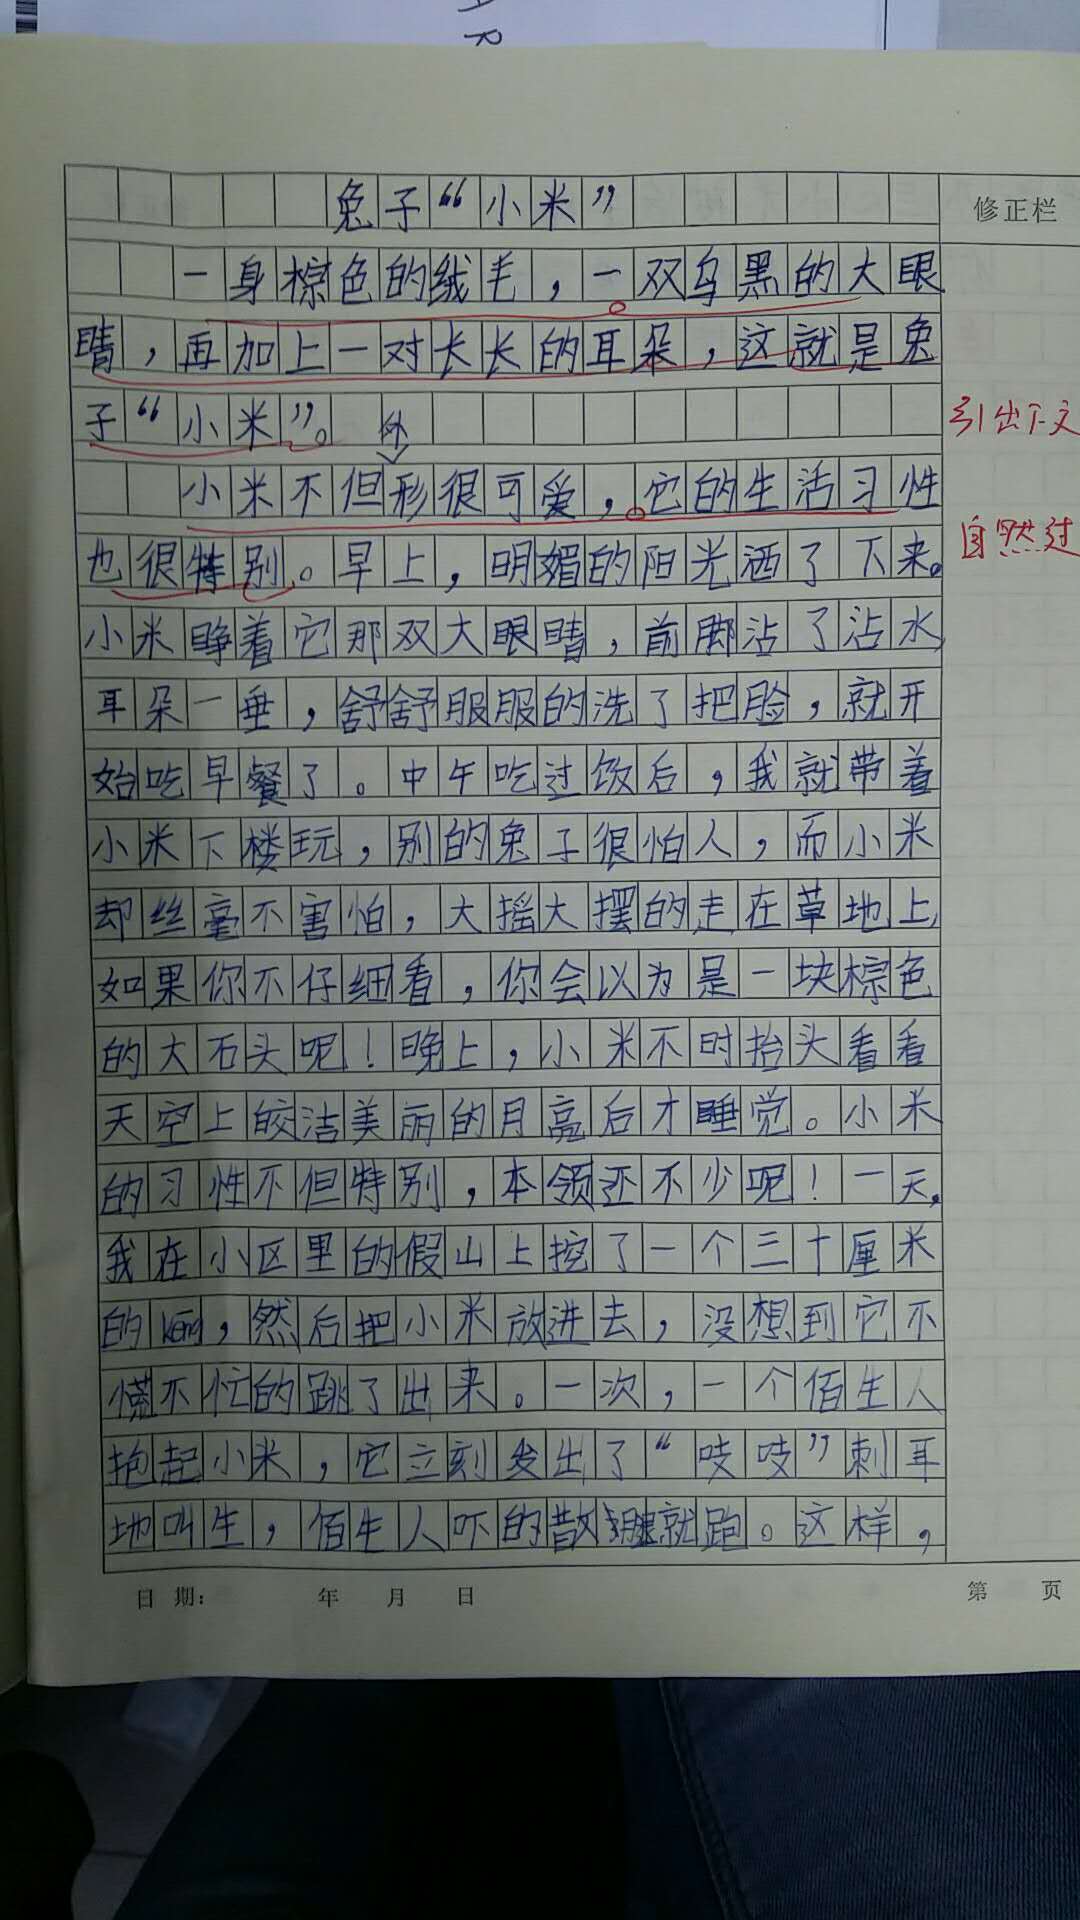 AR
兔子“小米”
修正栏
一身棕色的绒毛，一双乌黑的大眼
睛，再加上一对长长的耳朵，这就是兔
子“小米”。
引出下文
外
小米不但形很可爱，它的生活习性
自然过
也很特别。早上，明媚的阳光洒了下来。
小米睁着它那双大眼睛，前脚沾了沾水，
耳朵一垂，舒舒服服的洗了把脸，就开
始吃早餐了。中午吃过饭后，我就带着
小米下楼玩，别的兔子很怕人，而小米
却丝毫不害怕，大摇大摆的走在草地上，
如果你不仔细看，你会以为是一块棕色
的大石头呢！晚上，小米不时抬头看看
天空上皎洁美丽的月亮后才睡觉。小米
的习性不但特别，本领还不少呢！一天，
我在小区里的假山上挖了一个三十厘米
的keng，然后把小米放进去，没想到它不
慌不忙的跳了出来。一次，一个佰生人
抱起小米，它立刻发出了“吱吱”刺耳
地叫生，佰生人吓的散腿就跑。这样，
日期： 年 月 日
第 页